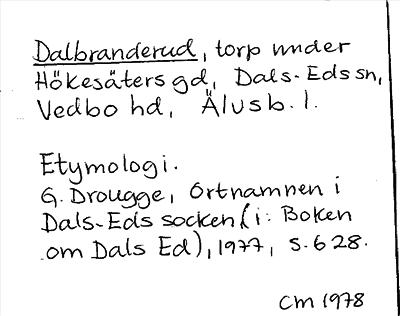 Dalbranderud, torp under
Hökesäters gd, Dals-Eds sn,
Vedbo hd, Älvsb. l.
Etymologi.
G. Drougge, Ortnamnen i
Dals-Eds socken (i: Boken
om Dals Ed), 1977, s. 628.
CM 1978